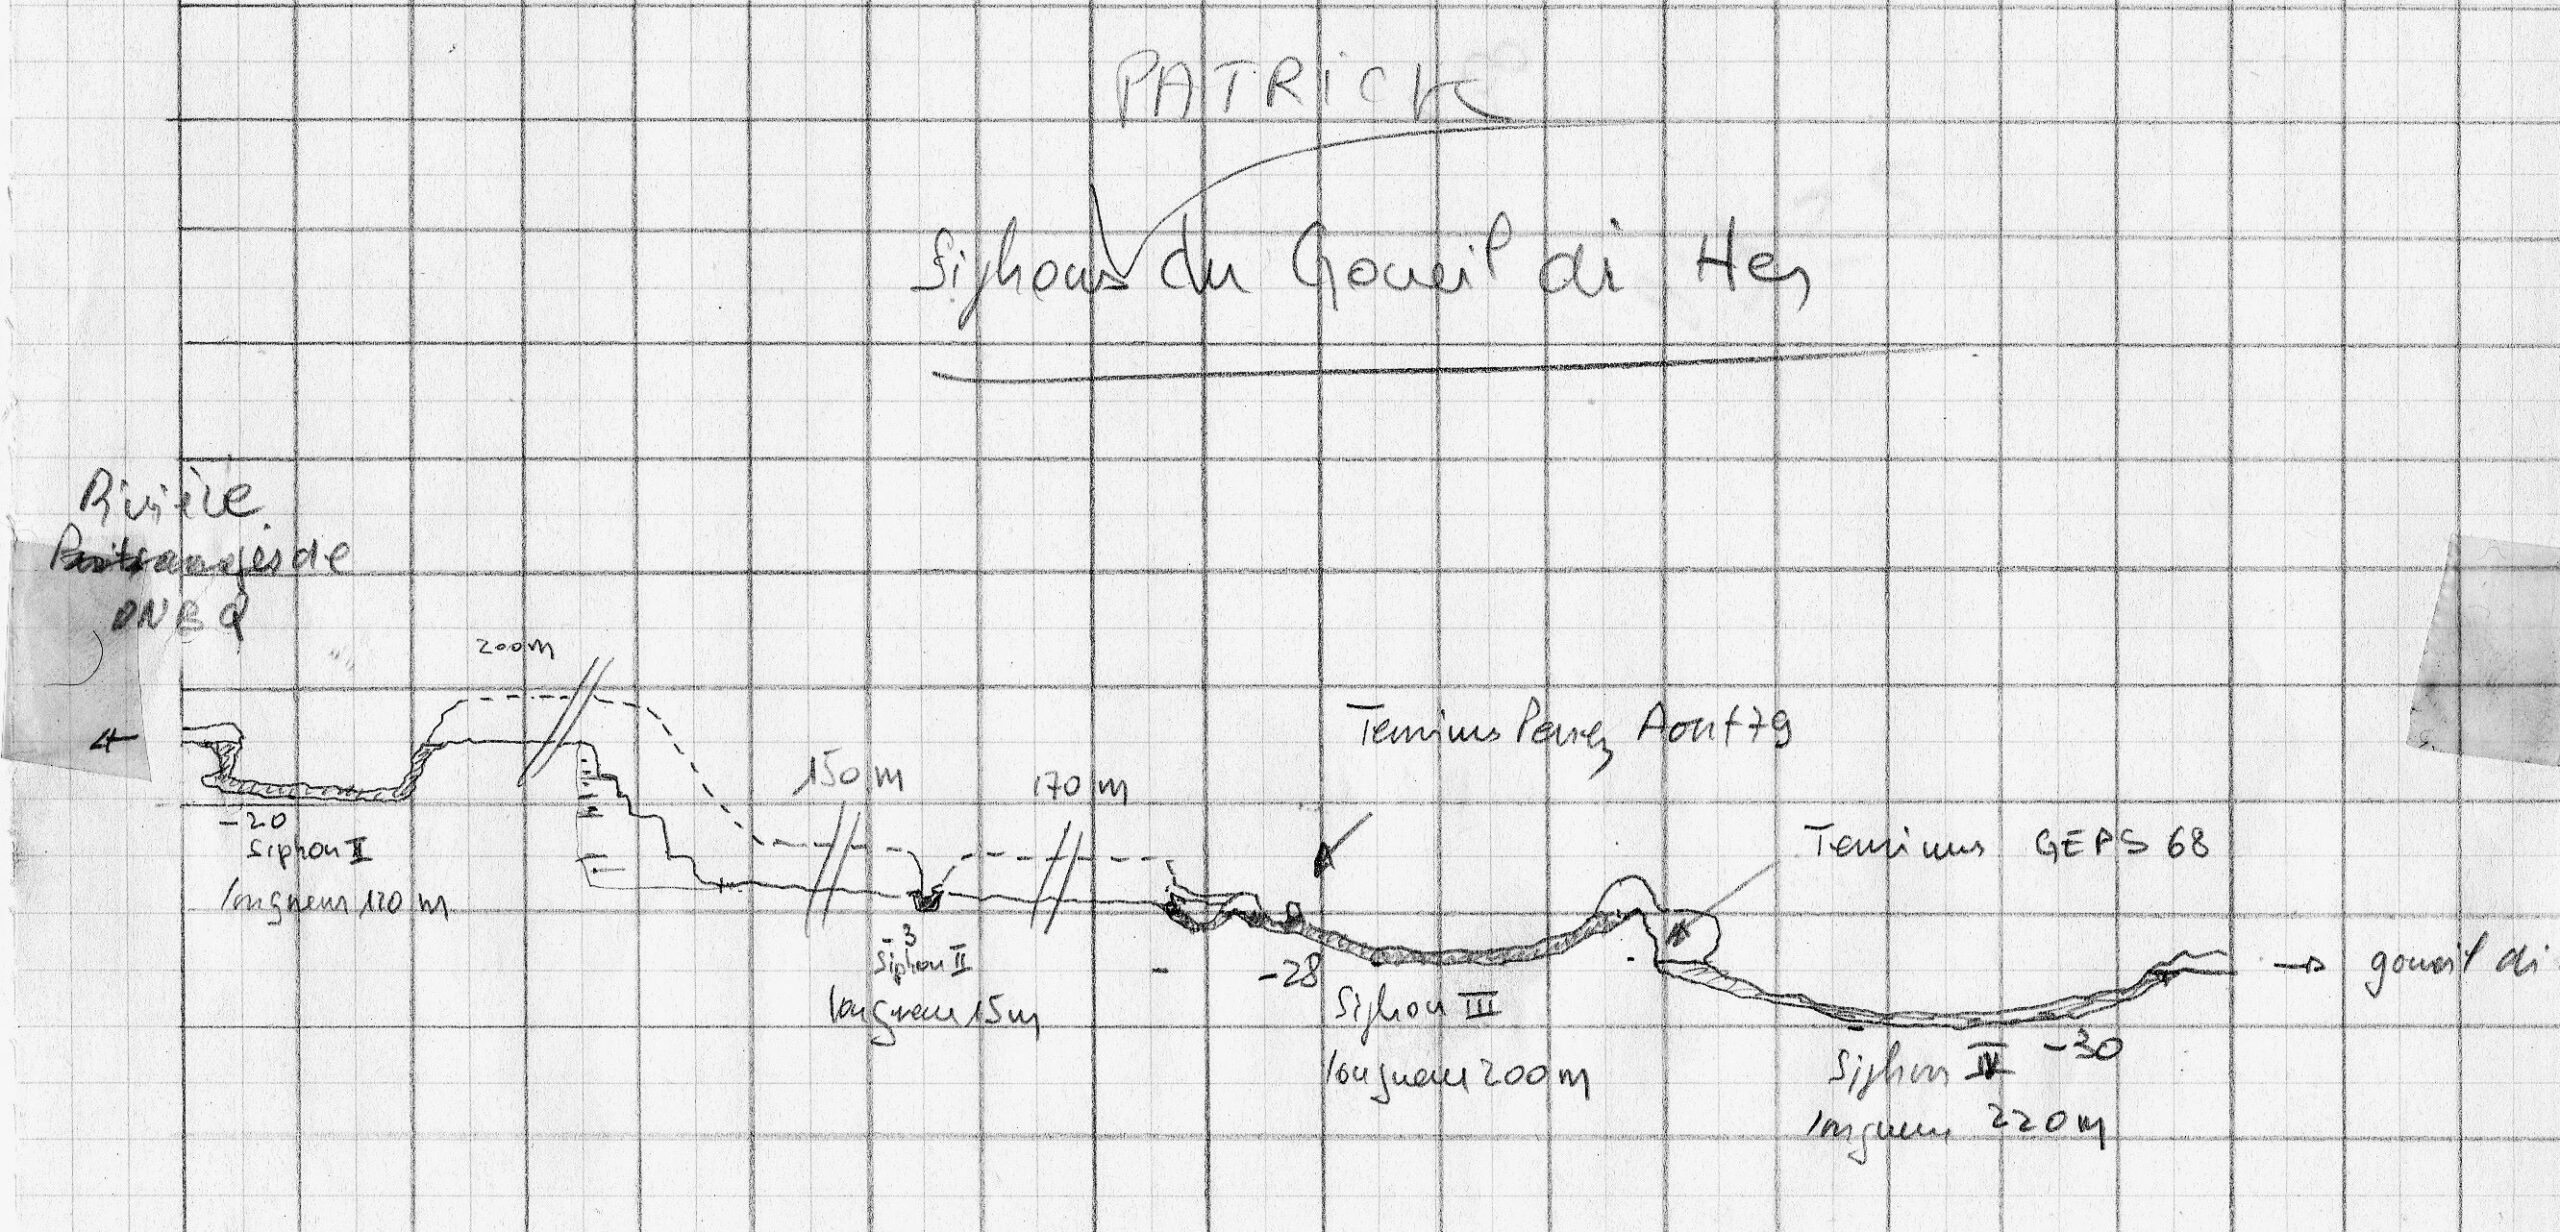 PATRICK
Siphons du Goueil di Her
Rivière
de
ONBQ
200m
150 m
170 m
Terminus Perrez Aout 79
Terminus GEPS 68
-20
Siphon I
longueur 120 m
-3
Siphon II
longueur 15m
-28
Siphon III
longueur 200m
-30
Siphon IV
longueur 220m
goueil di